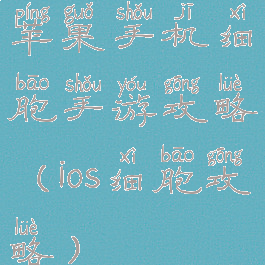 píng guǒ shǒu jī xì
苹果手机细
bāo shǒu yóu gōng lüè
胞手游攻略
xì bāo gōng
（ios细胞攻
lüè
略）